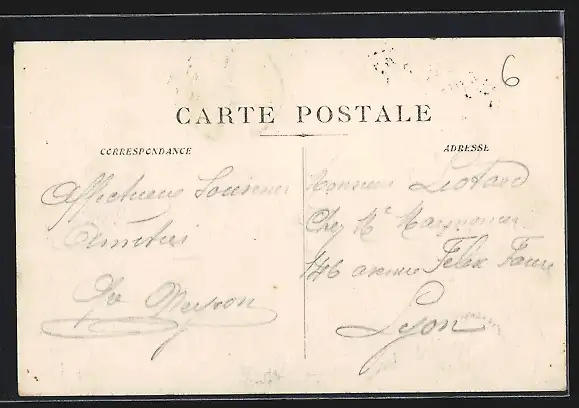 6
CARTE POSTALE
CORRESPONDANCE
ADRESSE
Affectueux Souvenir
Amitiés
Monsieur Liotard
Chez Mr
146 avenue Félix Faure
Lyon